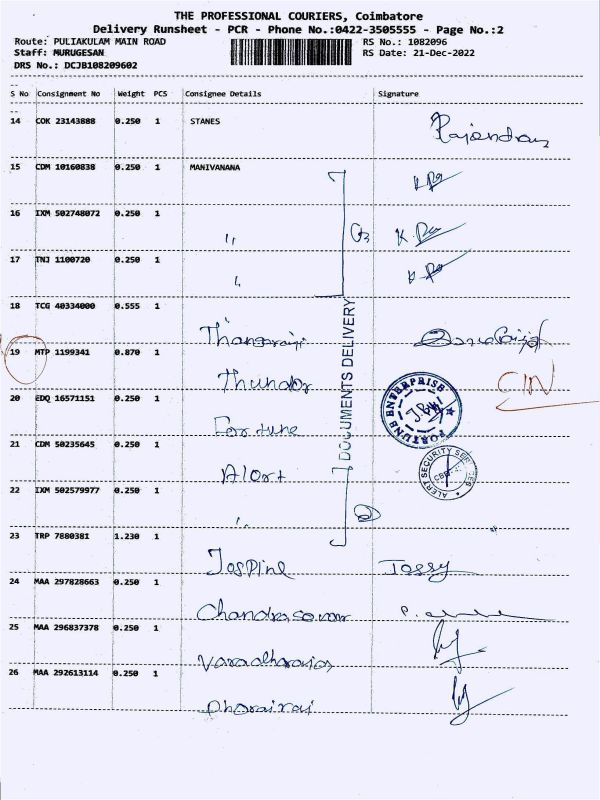 THE PROFESSIONAL COURIERS, Coimbatore
Delivery Runsheet - PCR - Phone No.:0422-3505555 - Page No.:2
Route: PULIAKULAM MAIN ROAD RS No.: 1082096
Staff: MURUGESAN RS Date: 21-Dec-2022
DRS No.: DCJB108209602
S No Consignment No Weight PCS Consignee Details Signature
14 COK 23143888 0.250 1 STANES Rajendran
15 CDM 10160838 0.250 1 MANIVANANA
16 IXM 502748072 0.250 1 "
17 TNJ 1100720 0.250 1 "
18 TCG 40334000 0.555 1 Thangaraj
19 MTP 1199341 0.870 1 Thunder
20 EDQ 16571151 0.250 1 Fortune
21 CDM 50235645 0.250 1 Alert
22 IXM 502579977 0.250 1 "
23 TRP 7880381 1.230 1 Jospine Jossy
24 MAA 297828663 0.250 1
25 MAA 296837378 0.250 1
26 MAA 292613114 0.250 1
DOCUMENTS DELIVERY
FORTUNE ENTERPRISE
ALERT SECURITY SERVICES